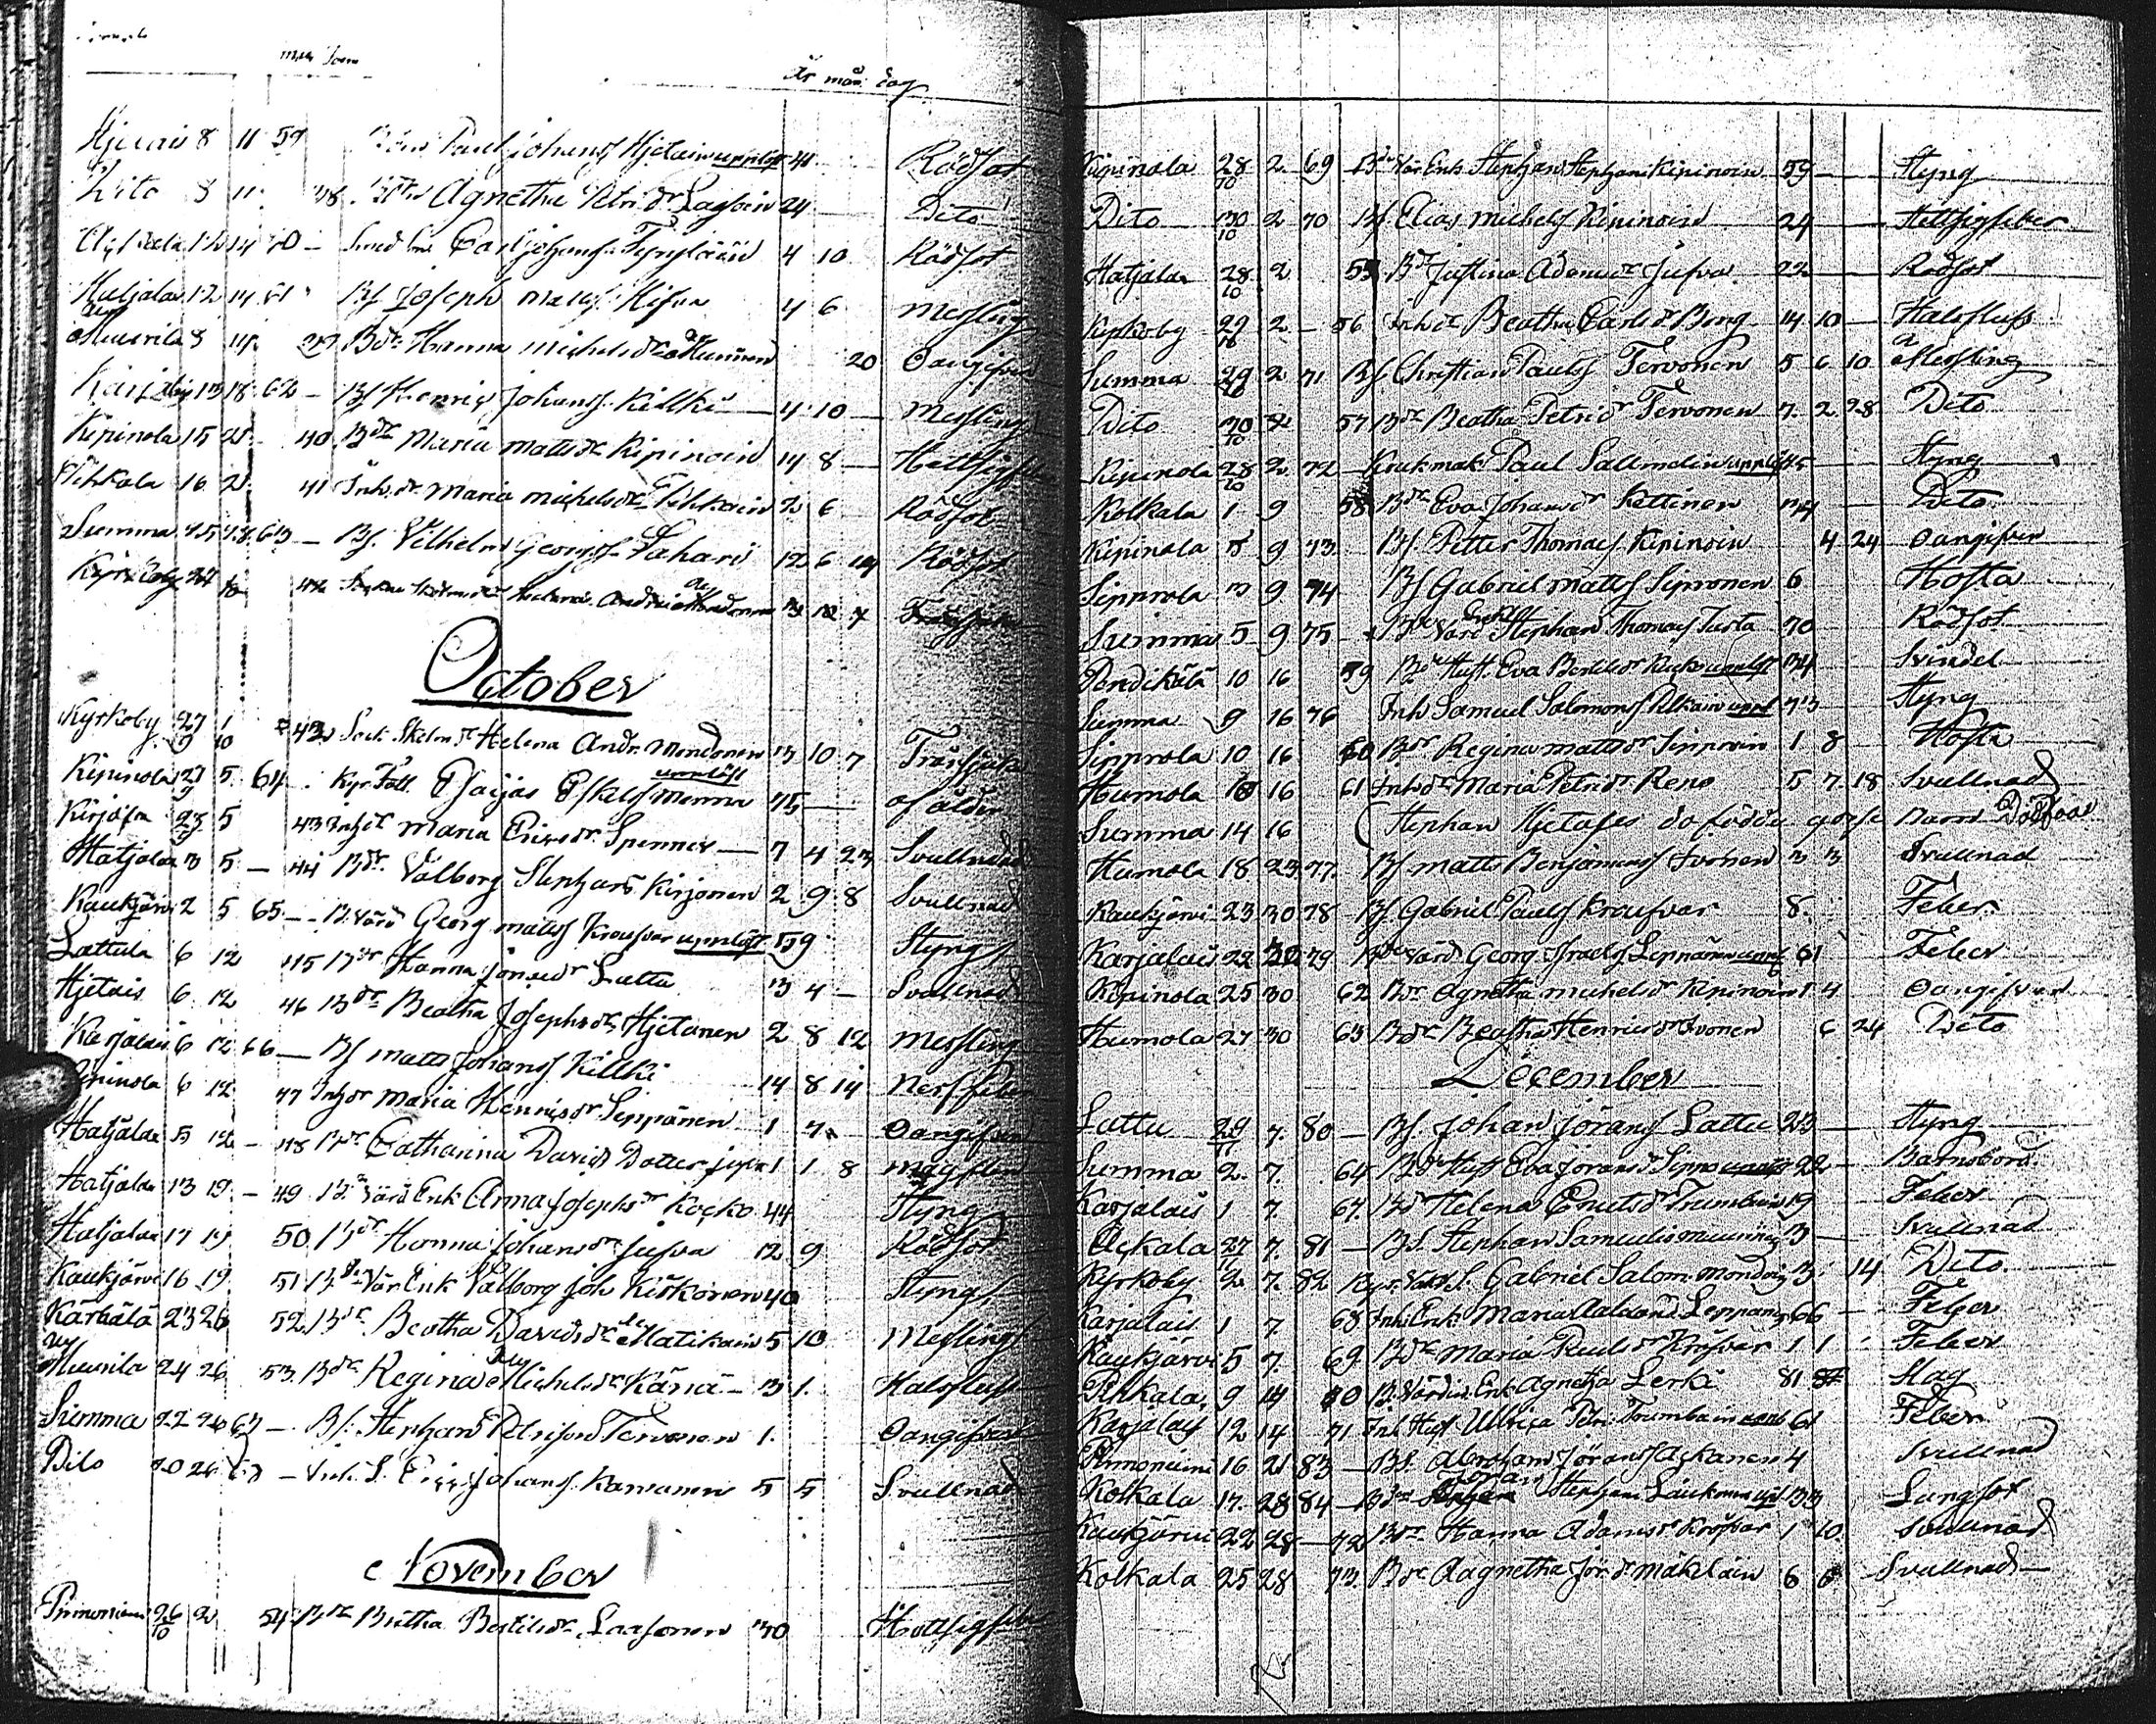 År mån dag
Hjetais 8 11 59 Paul Johans Hjetain upplöst 41 Rödsot
Dito 8 11 38 Agnetha Petri dr 24 Dito
12 14 60 Carl Johans 4 10 Rödsot
Hatjalax 12 14 61 Bs Joseph Matts 4 6 Messling
Muurila 8 14 Bdr Hanna Michelsdr 20 Oangifven
Karjalais 13 18 62 Bs Henric Johans Killki 4 10 Messling
Kipinola 15 21 40 Bdr Maria Mattsdr Kipinoin 14 8 Hettsigf
Pihkala 16 21 41 Inh dr Maria Michelsdr Pihkain 2 6 Rödsot
Summa 15 18 63 Bs Vilhelm Georgs 12 6 14 Rödsot
Kyrkoby 27 42 Helena 13 10 7
October
Kyrkoby 27/9 1/10 42 Sock Skrdr Helena Andr. Mondonen 13 10 7 Tråsjuka
Kipinola 27/9 5 64 Kyr Fatt. Esaijas Eskels Monna upplöst 75 af ålder
Kirjola 29/9 5 43 Inh dr Maria Ericsdr Spenner 7 4 23 Svullnad
Hatjalax 3 5 44 Bdr Valborg Stephans Kirjonen 2 9 8 Svullnad
Kaukjärvi 2 5 65 B. Värd Georg Matts Krousvar upplöst 59 Styng
Lattula 6 12 45 Bdr Hanna Jörandr Lattu 3 4 Svullnad
Hjetais 6 12 46 Bdr Beatha Josephsdr Hjetanen 2 8 12 Messling
Karjalais 6 12 66 Bs Matts Johans Killki 14 8 14 Nerffeber
Kipinola 6 12 47 Inh dr Maria Henricsdr Seppänen 1 7
Hatjalax 5 12 48 Bdr Catharina Davids Dotter 1 1 8
Hatjalax 13 19 49 Bde Värd Enk Anna Josephsdr Kocko 44 Styng
Hatjalax 17 19 50 Bdr Hanna Johansdr Jusva 12 9 Rödsot
Kaukjärvi 16 19 51 Bde Vär Enk Valborg Joh Kirkonen 40 Styng
Kärhälä 23 26 52 Bdr Beatha Davidsdr Matikain 5 10 Messling
Muurila 24 26 53 Bdr Regina Michelsdr Käriä 3 1 Halsfluss
Summa 22 26 67 Bs Stephan Petrison Tervonen 1 Oangifven
Dito 20 26 68 Inh. S. Johans 5 5 Svullnad
November
Pinnoniemi 26/10 2 54 Bdr Beatha Bertilsdr Laasonen 30 Hettsigfeber
Kipinola 28/10 2 69 Bde Vär Enk Stephan Stephans Kipinoin 59 Styng
Dito 30/10 2 70 Bs Elias Michels Kipinoin 24 Hettsigfeber
Hatjalax 28/10 2 55 Bdr Justina Adamsdr Jusva 22 Rödsot
Kyrkoby 29/10 2 56 Inh dr Beatha Carlsdr Berg 14 10 Halsfluss
Summa 29/10 2 71 Bs Christian Pauls Tervonen 5 6 10 Messling
Dito 30/10 2 57 Bdr Beatha Petri dr Tervonen 7 2 28 Dito
Kipinola 28/10 2 72 Krukmak Paul Sallmelin upplöst 45 Styng
Kolkala 1 9 58 Bdr Eva Johansdr Kettinen 74 Dito
Kipinola 5 9 73 Bs. Petter Thomas Kipinoin 4 24 Oangifven
Sipprola 3 9 74 Bs Gabriel Matts Sipronen 6 Hosta
Summa 5 9 75 Bde Värd Enkl Stephan Thomas Tusta 70 Rödsot
Pendikälä 10 16 59 Bde Hust. Eva Bertilsdr upplöst 34 Svindel
Summa 9 16 76 Inh Samuel Salomons Pelkain uppl 73 Styng
Sipprola 10 16 60 Bdr Regina Mattsdr Sipproin 1 8 Hosta
Humola 10 16 61 Inh dr Maria Petri dr Reno 5 7 18 Svullnad
Summa 14 16 Stephan Hjetases dödfödda gosse Barn Dödfödd
Humola 18 23 77 Bs Matts Benjamins Ivonen 3 3 Svullnad
Kaukjärvi 23 30 78 Bs Gabriel Pauls Krousvar 8 Feber
Karjalais 22 30 79 Bde Värd Georg Israels Leppänen uppl 61 Feber
Kipinola 25 30 62 Bdr Agnetha Michelsdr Kipinoin 1 4 Oangifven
Humola 27 30 63 Bdr Beatha Henricsdr Ivonen 6 24 Dito
December
Lattu 29/11 7 80 Bs. Johan Jörans Lattu 23 Styng
Summa 2 7 64 Bde Hust Eva Joransdr Sippo 22 Barnsbörd
Karjalais 1 7 67 Bdr Helena Knutsdr Trumbain 19 Feber
Ackala 27/11 7 81 Bs. Stephan Samuelis Muurinen 3 Svullnad
Kyrkoby 2 7 82 Kyr. Värd. S. Gabriel Salom. Mondoin 3 14 Dito
Karjalais 1 7 68 Inh Enk Maria Leppänen 66 Feber
Kaukjärvi 5 7 69 Bdr Maria Paulsdr Krosvar 1 1 Feber
Pihkala 9 14 70 B. Värdin. Enk Agnetha Lerki 81 Slag
Karjalais 12 14 71 Inh Hust Ullrica Petri Trumbain uppl 61 Feber
Pinnoniemi 16 21 83 Bs. Abraham Jörans Ackanen 4 Svullnad
Kolkala 17 28 84 Jöran Stephans Laukonen uppl 33 Lungsot
Kaukjärvi 22 28 72 Bdr Hanna Adamsdr Krosvar 1 10 Svullnad
Kolkala 25 28 73 Bdr Aagnetha Jör dr Mäkiläin 6 6 Svullnad